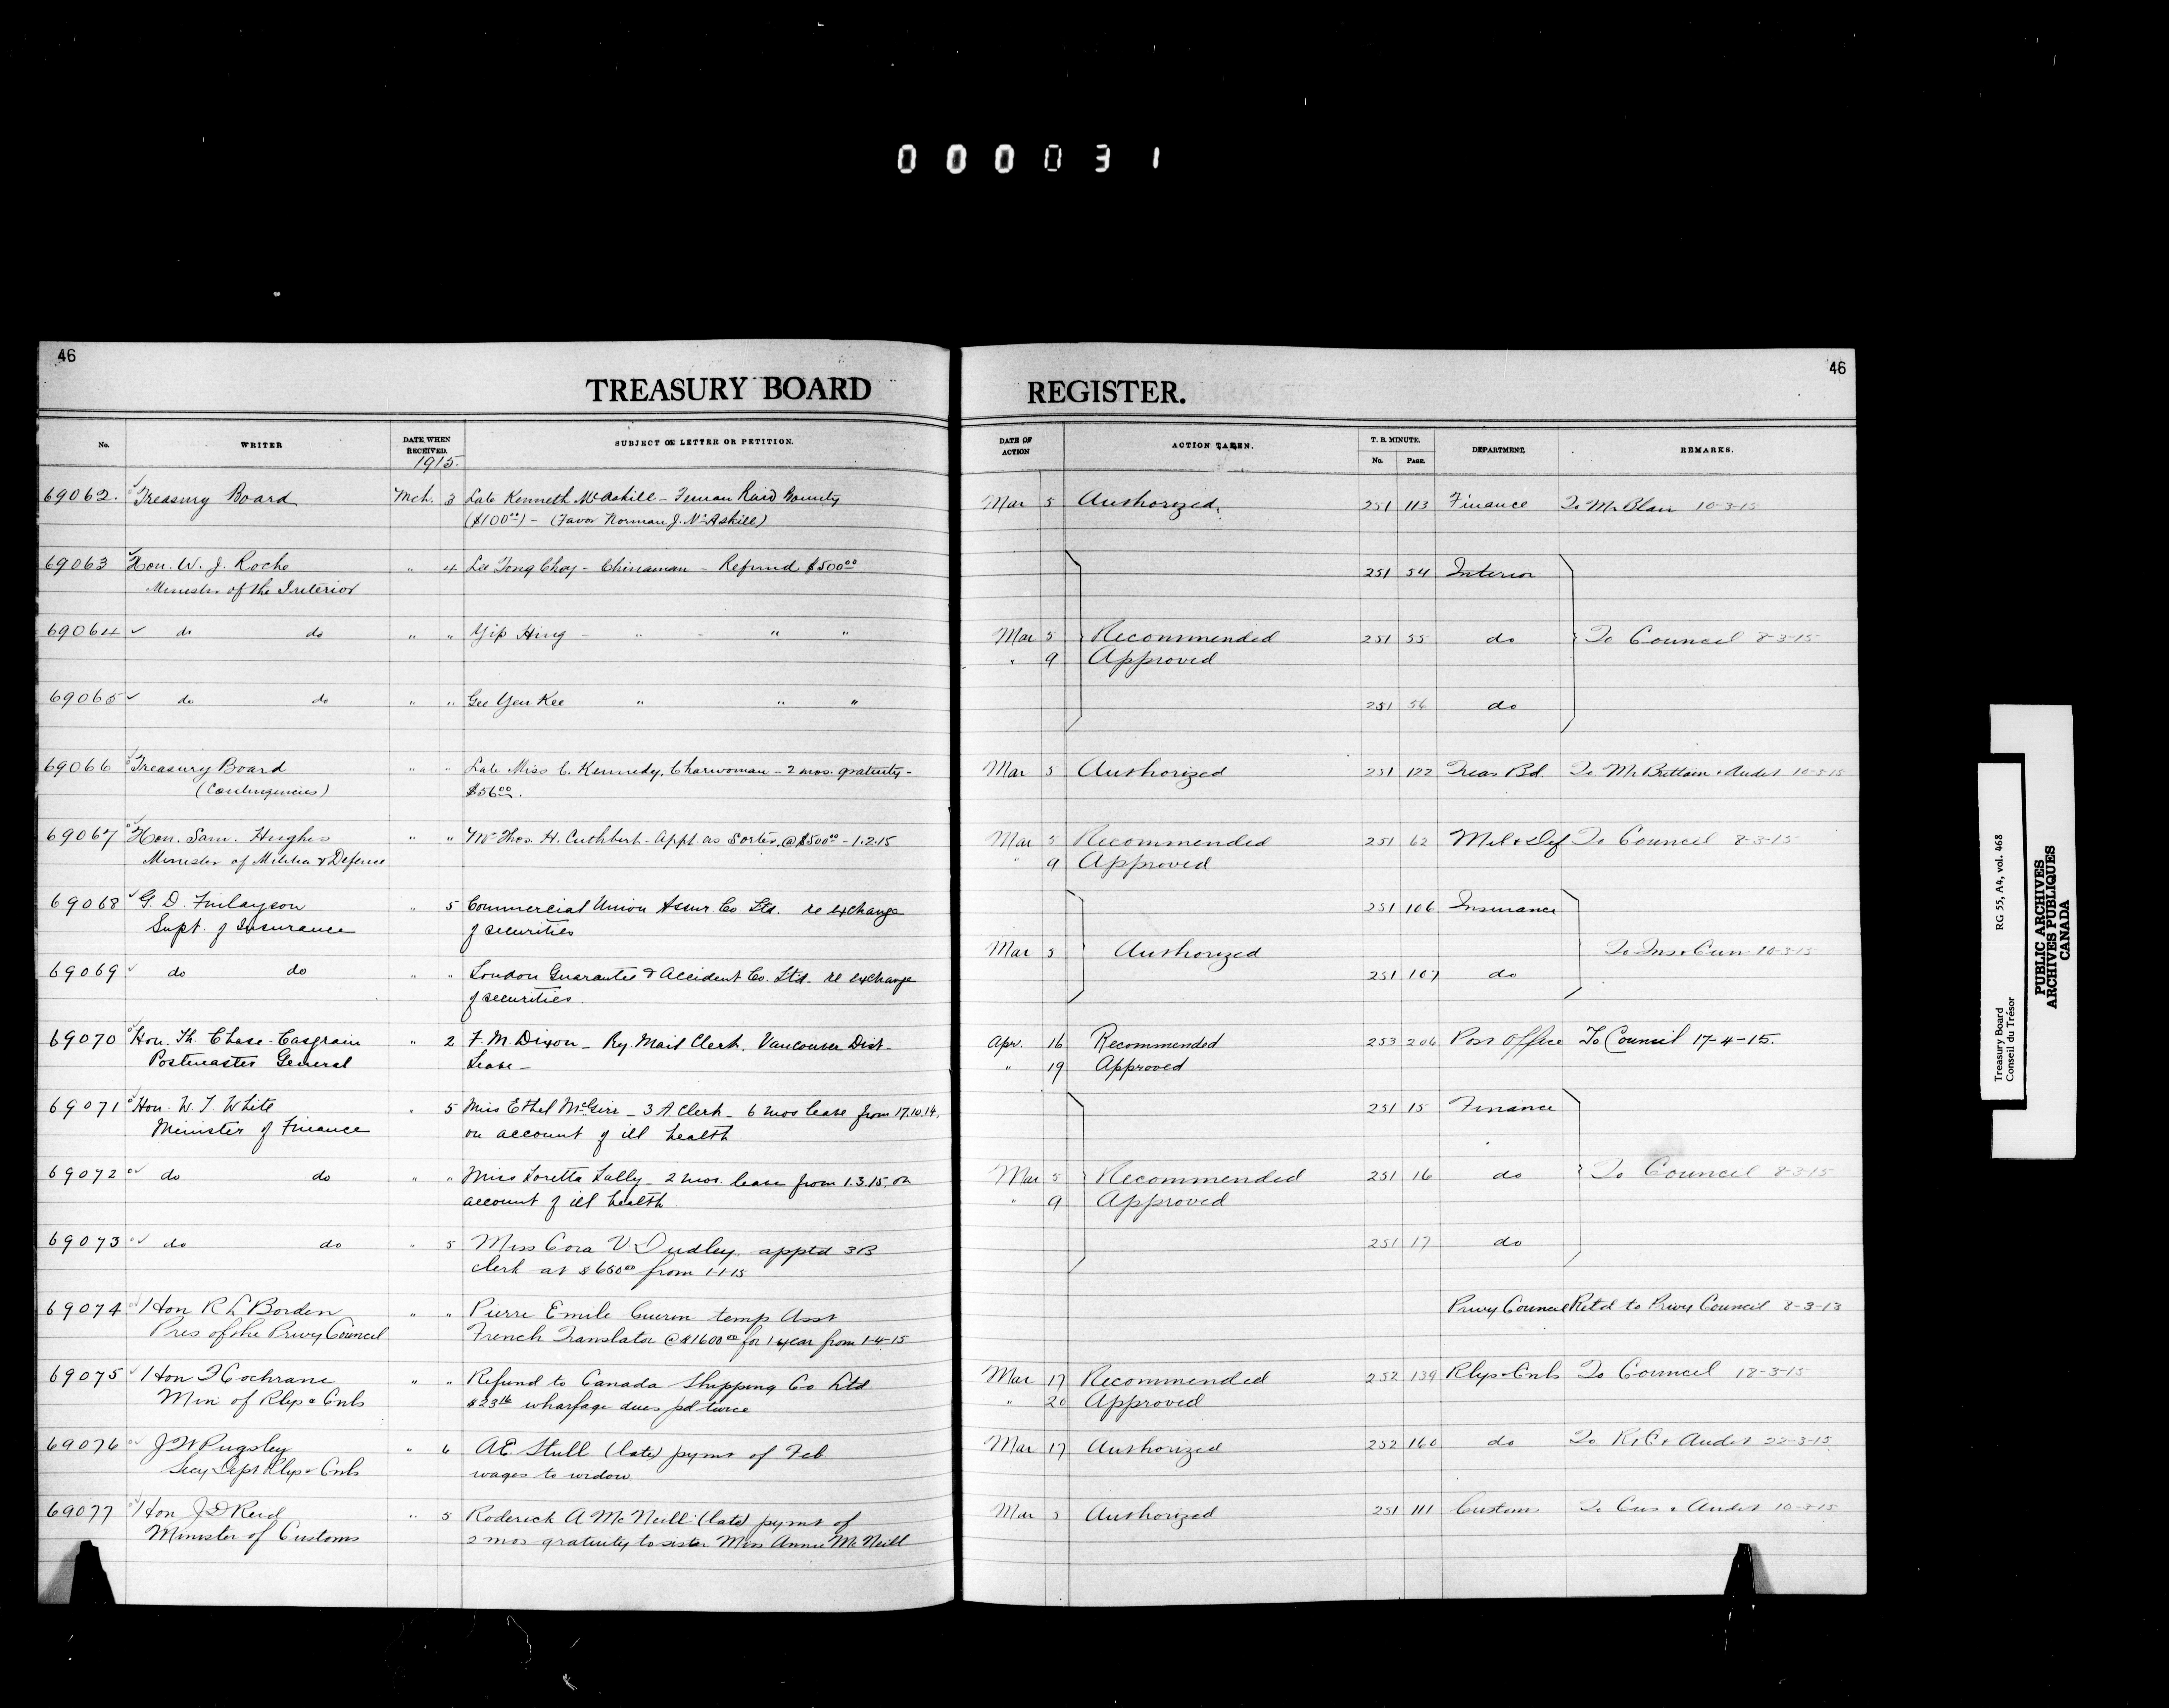 000031
46
TREASURY BOARD
No.
WRITER
DATE WHEN RECEIVED.
1915.
SUBJECT OF LETTER OR PETITION.
69062. Treasury Board Mch. 3 Late Kenneth McAskill - Fenian Raid Bounty
($100.00) - (Favor Norman J. McAskill)
69063 Hon. W. J. Roche " 4 Lee Tong Choy - Chinaman - Refund $500.00
Minister of the Interior
69064 do do " " Yip Hing - " - " "
69065 do do " " Gee Yen Kee " " "
69066 Treasury Board " " Late Miss C. Kennedy, Charwoman - 2 mos. gratuity -
(Contingencies) $56.00.
69067 Hon. Sam. Hughes " " Mr Thos. H. Cuthbert - appt. as Sorter, @ $500.00 - 1.2.15
Minister of Militia & Defence
69068 G. D. Finlayson " 5 Commercial Union Assur. Co. Ltd. re exchange
Supt. of Insurance of securities
69069 do do " " London Guarantee & Accident Co. Ltd. re exchange
of securities.
69070 Hon. Th. Chase-Casgrain " 2 F. M. Dixon - Ry. Mail Clerk, Vancouver Dist -
Postmaster General Leave -
69071 Hon. W. T. White " 5 Miss Ethel McGirr - 3 A Clerk - 6 mos leave from 17.10.14,
Minister of Finance on account of ill health.
69072 do do " " Miss Loretta Lally - 2 mos. leave from 1.3.15. on
account of ill health
69073 do do " 5 Miss Cora V Dudley apptd 3B
clerk at $650.00 from 1-1-15
69074 Hon R L Borden " " Pierre Emile Guerin temp Asst
Pres of the Privy Council French Translator @ $1600.00 for 1 year from 1-4-15
69075 Hon F Cochrane " " Refund to Canada Shipping Co Ltd
Min of Rlys & Cnls $23.16 wharfage dues pd twice
69076 J W Pugsley " 6 A.E. Stull (late) pymt of Feb
Secy Dept Rlys & Cnls wages to widow
69077 Hon J D Reid " 5 Roderick A McNeill (late) pymt of
Minister of Customs 2 mos gratuity to sister Miss Annie McNeill
46
REGISTER.
DATE OF ACTION
ACTION TAKEN.
T. B. MINUTE.
No. PAGE.
DEPARTMENT.
REMARKS.
Mar 5 Authorized. 251 113 Finance To Mr Blair 10-3-15
251 54 Interior
Mar 5 Recommended 251 55 do To Council 8-3-15
" 9 Approved
251 56 do
Mar 5 Authorized 251 122 Treas Bd. To Mr Brittain & Audit 10-3-15
Mar 5 Recommended 251 62 Mil & Def To Council 8-3-15
" 9 Approved
251 106 Insurance
Mar 5 Authorized To Ins & Curr 10-3-15
251 107 do
Apr. 16 Recommended 253 206 Post Office To Council 17-4-15.
" 19 Approved
251 15 Finance
Mar 5 Recommended 251 16 do To Council 8-3-15
" 9 Approved
251 17 do
Privy Council Retd to Privy Council 8-3-13
Mar 17 Recommended 252 139 Rlys & Cnls To Council 18-3-15
" 20 Approved
Mar 17 Authorized 252 160 do To R & C & Audit 22-3-15
Mar 5 Authorized 251 111 Customs To Cus & Audit 10-3-15
Treasury Board RG 55, A4, vol. 468
Conseil du Trésor
PUBLIC ARCHIVES
ARCHIVES PUBLIQUES
CANADA